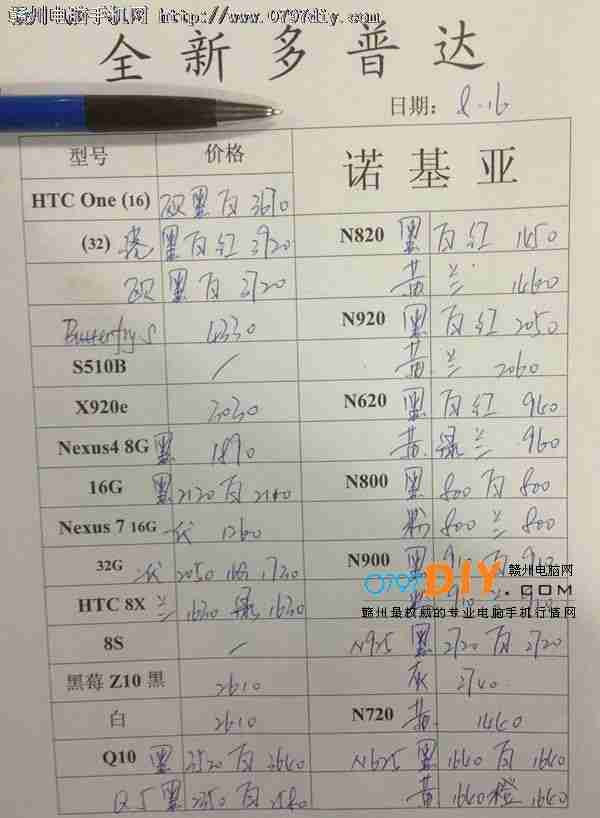 赣州电脑手机网 http://www.0797diy.com
全新多普达
日期: 8.16
型号 价格 诺基亚
HTC One (16) 欧 黑 白 3670
(32) 亮 黑 白 红 3920 N820 黑 白 红 1450
欧 黑 白 3720 黄 兰 1460
Butterfly S 4330 N920 黑 白 红 2050
S510B / 黄 兰 2060
X920e 3030 N620 黑 白 红 940
Nexus4 8G 黑 1890 黄 绿 兰 960
16G 黑 2120 白 2140 N800 黑 800 白 800
Nexus 7 16G 一代 1260 粉 800 兰 800
32G 二代 2050 1730 N900 黑 910 白 910
0797DIY.COM 赣州电脑网
赣州最权威的专业电脑手机行情网
HTC 8X 兰 1630 绿 1630
8S / N925 黑 2720 白 2720
黑莓 Z10 黑 2610 灰 2740
白 2610 N720 黄 1440
Q10 黑 3520 白 3640 N625 黑 1640 白 1640
Q5 黑 2350 白 黄 1640 橙 1640